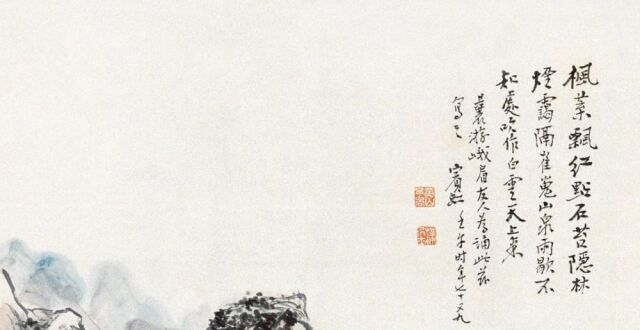 楓葉飄紅點石苔隱林
煙靄隔崔嵬山泉雨歇不
知處吹作白雲天上來
曩游峨眉友人為誦此茲
寫之 賓虹 壬午時年七十又九